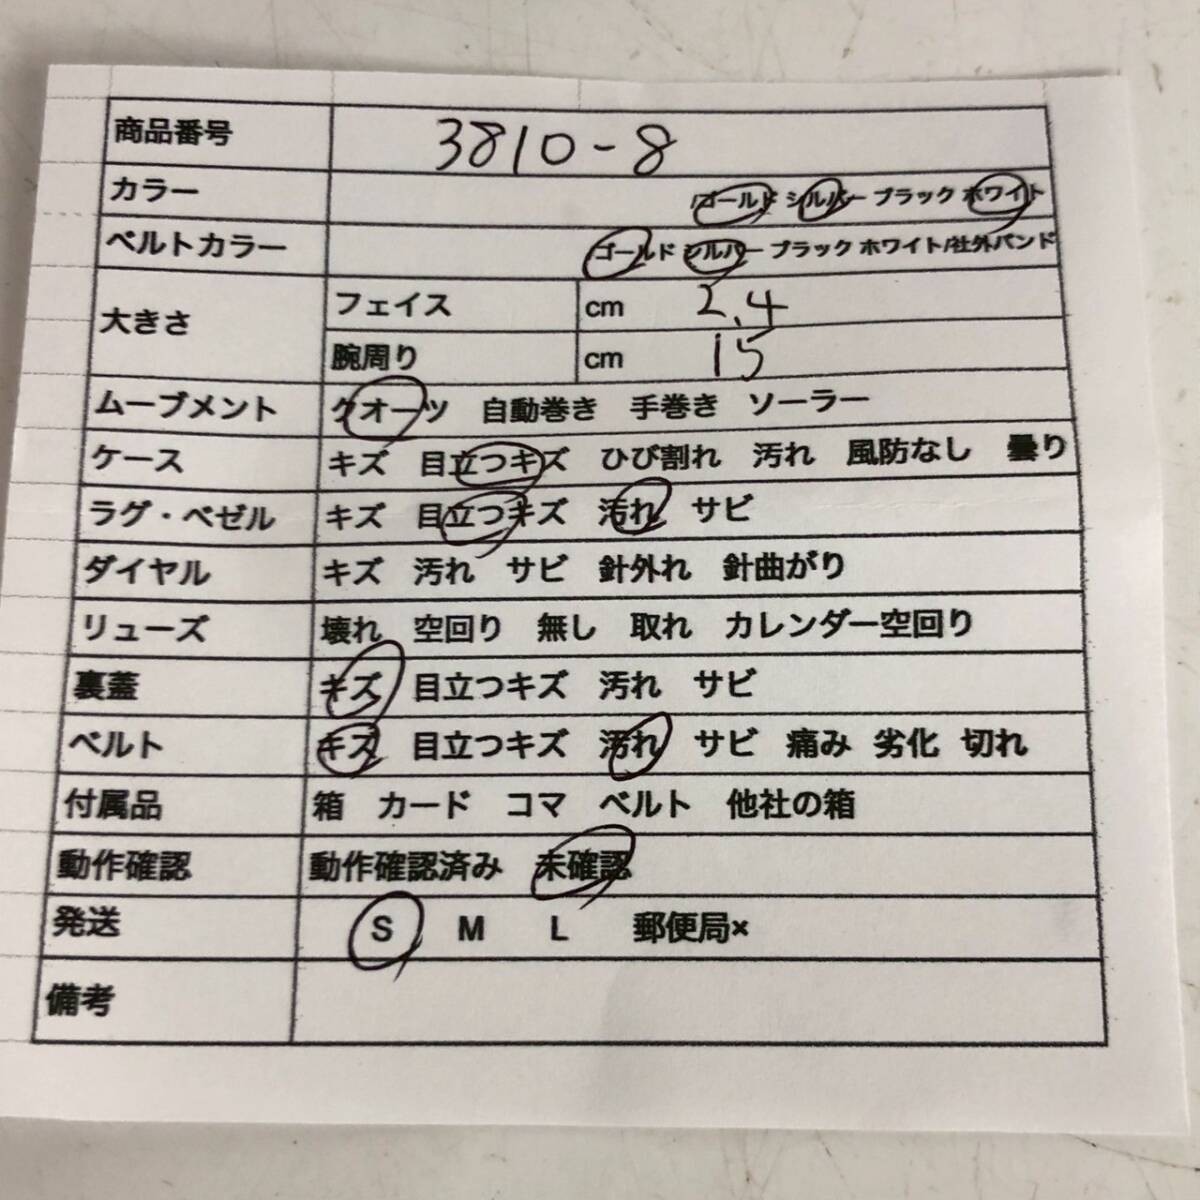 商品番号 3810-8
カラー ゴールド シルバー ブラック ホワイト
ベルトカラー ゴールド シルバー ブラック ホワイト/社外バンド
大きさ フェイス cm 2.4
腕周り cm 15
ムーブメント クオーツ 自動巻き 手巻き ソーラー
ケース キズ 目立つキズ ひび割れ 汚れ 風防なし 曇り
ラグ・ベゼル キズ 目立つキズ 汚れ サビ
ダイヤル キズ 汚れ サビ 針外れ 針曲がり
リューズ 壊れ 空回り 無し 取れ カレンダー空回り
裏蓋 キズ 目立つキズ 汚れ サビ
ベルト キズ 目立つキズ 汚れ サビ 痛み 劣化 切れ
付属品 箱 カード コマ ベルト 他社の箱
動作確認 動作確認済み 未確認
発送 S M L 郵便局×
備考